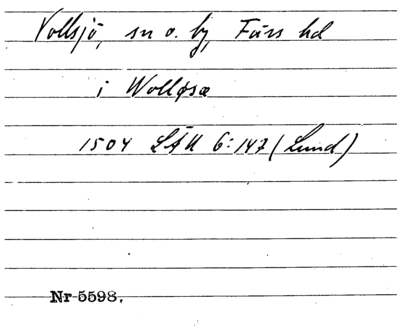 Vollsjö, sn o. by, Färs hd
i Wolløsæ
1504 LÄU 6:147 (Lund)
Nr 5598.